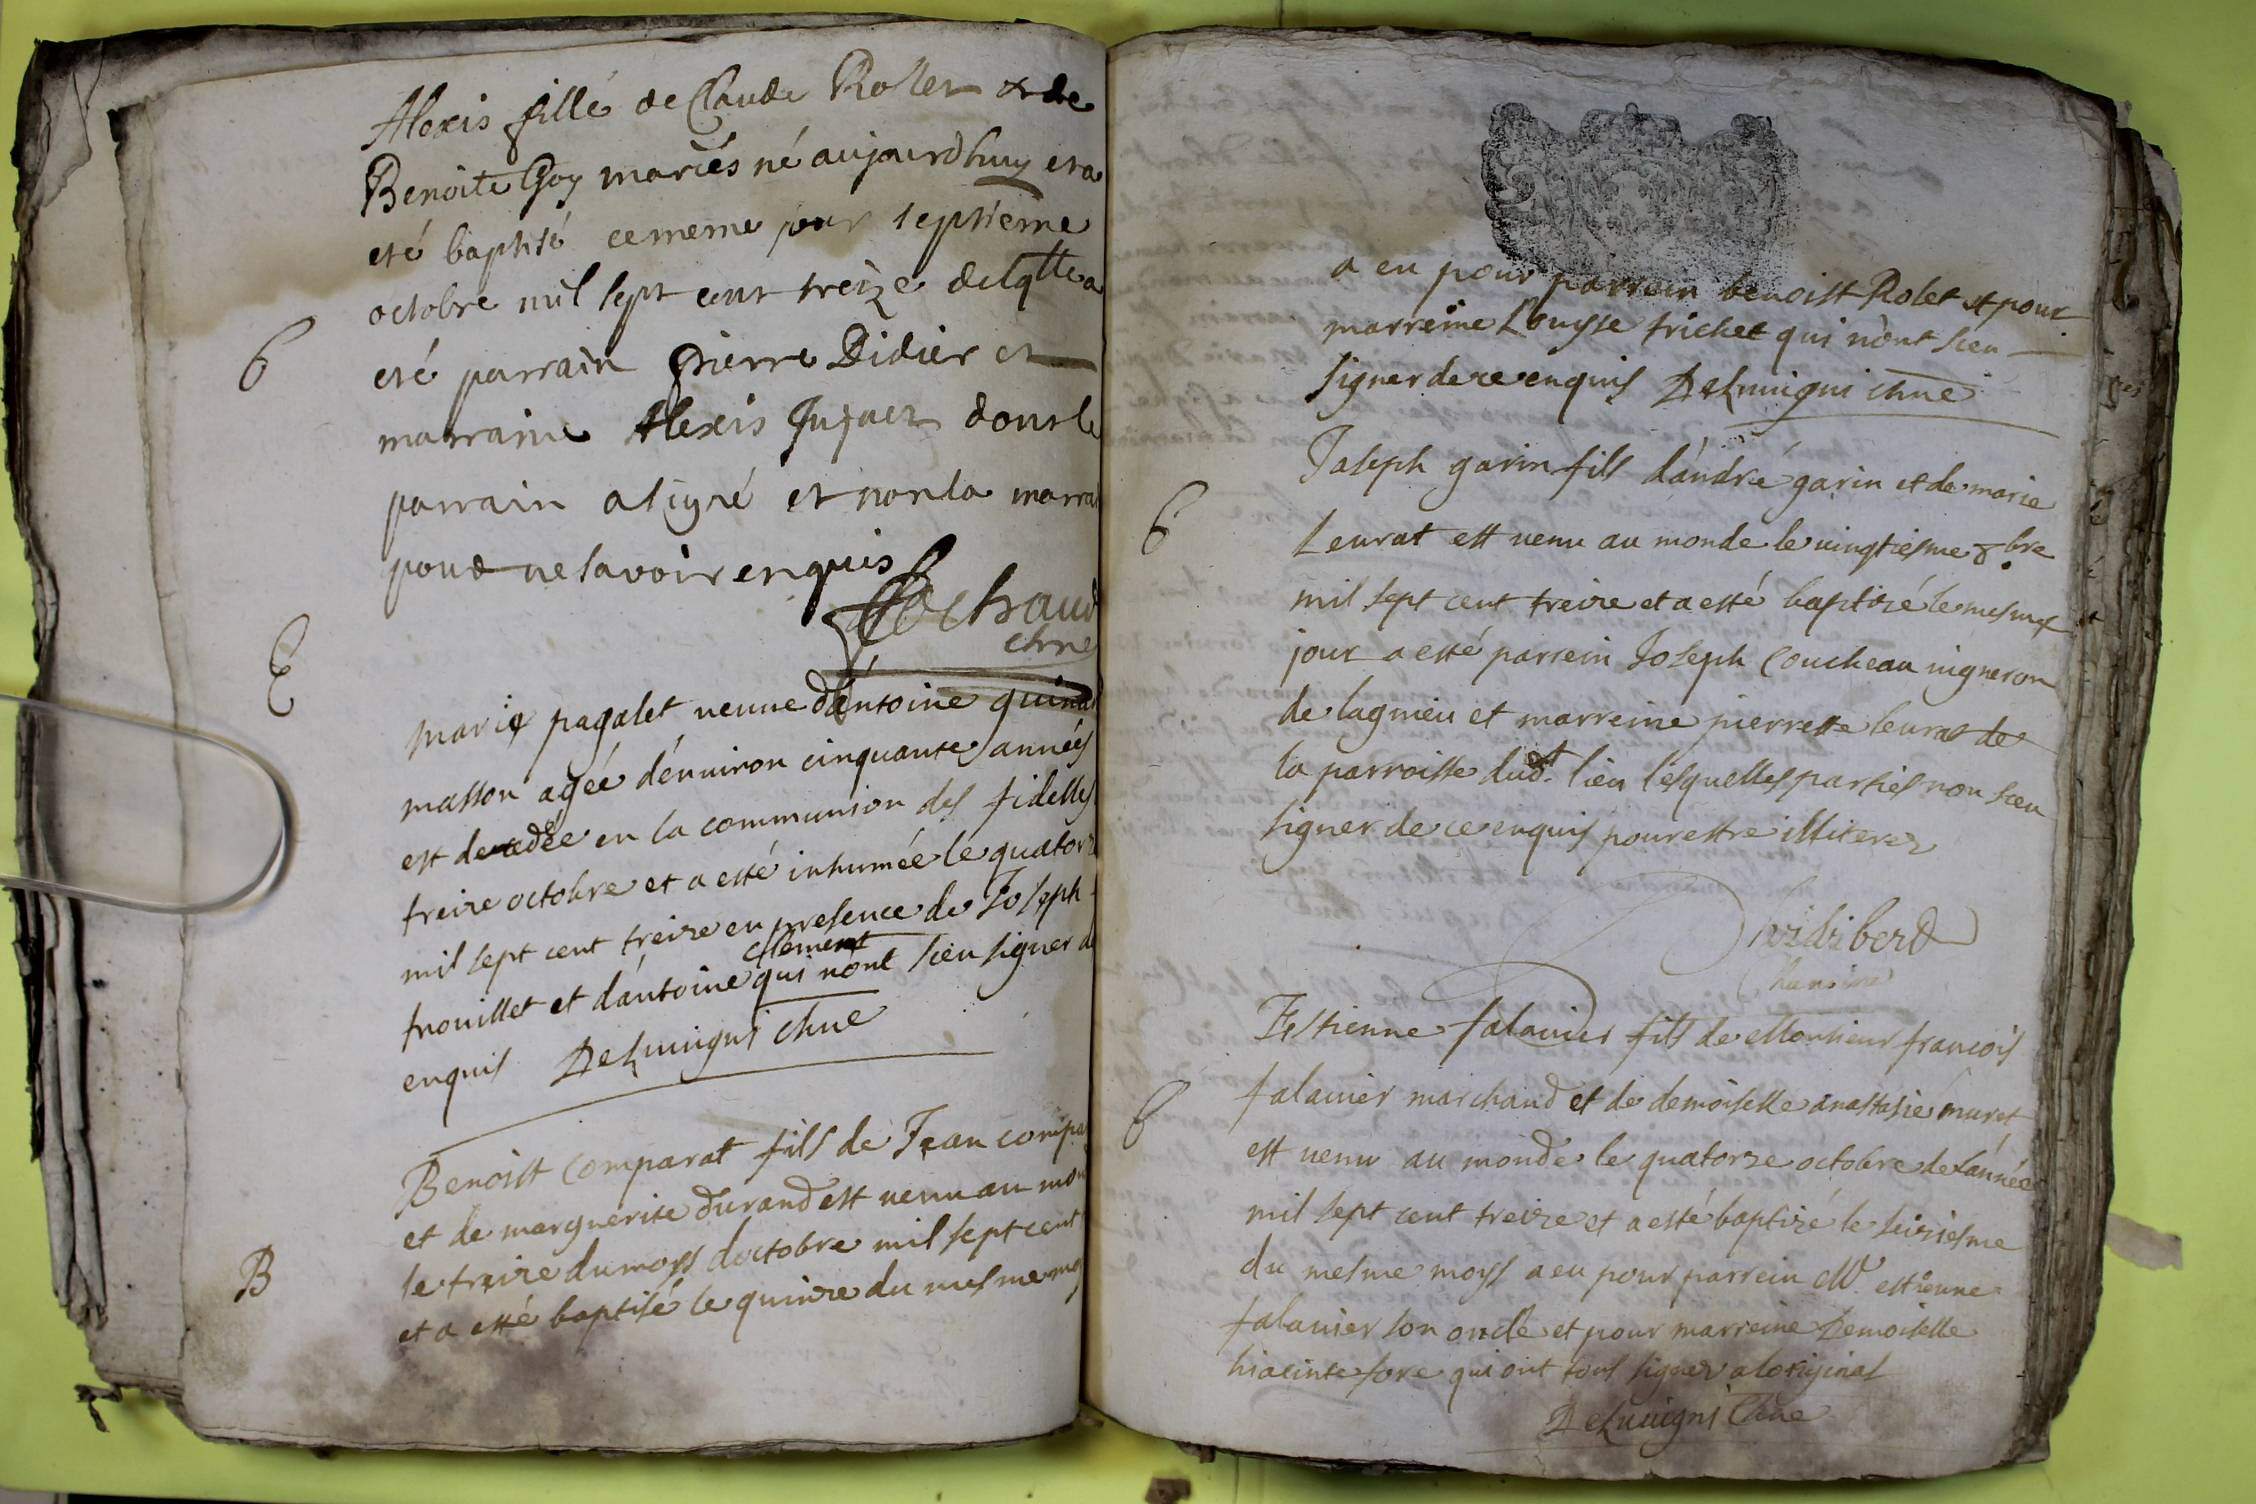 Alexis fille de Claude Rolet & de
Benoite Goy mariés né aujourdhuy et a
eté baptisé ce meme jour septieme
octobre mil sept cent treize de lqlle a
B
eté parrain Pierre Didier et
marraine Alexis Jujat dont le
parrain a signé et non la marra
pour ne savoir enquis
Cochaud
chne
E
marie pagalet veuve dántoine quina
masson agée dénuiron cinquante années
est decedée en la communion des fidelles
treize octobre et a esté inhumée le quator
mil sept cent treize en presence de Joseph
clement
trouillet et dántoine qui nónt sceu signer de
enquis Deluuigni chne
Benoist comparat fils de Jean compa
et de marguerite durand est venu au mon
B
le treize du moys doctobre mil sept cent
et a esté baptisé le quinze du mesme mo
a eu pour parrain benoist Rolet et pour
marreine Louysse trichet qui nónt sceu
signer de ce enquis Deluuigni chne
Joseph garin fils dándré garin et de marie
B
Leurat est venu au monde le vingtiesme 8bre
mil sept cent treize et a esté baptizé le mesme
jour a esté parrein Joseph Coucheau vigneron
de lagnieu et marreine pierrette leurat de
la parroisse dudt. lieu lesquelles parties non sceu
signer de ce enquis pour estre illiterez
chanoine
Estienne falauier fils de Monsieur francois
B
falauier marchand et de demoiselle anastasie muret
est venu au monde le quatorze octobre de lánnée
mil sept cent treize et a esté baptizé le seiziesme
du mesme moys a eu pour parrein Mr. estienne
falauier son oncle et pour marreine Demoiselle
hiacinte fore qui ont tous signez a loriginal
Deluuigni Chne